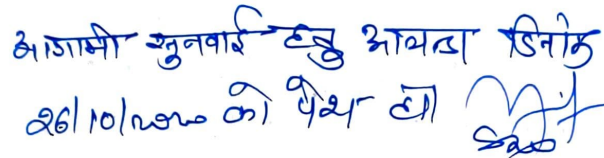 आगामी सुनवाई हेतु आवता दिनांक
26/10/2020 को पेश हो